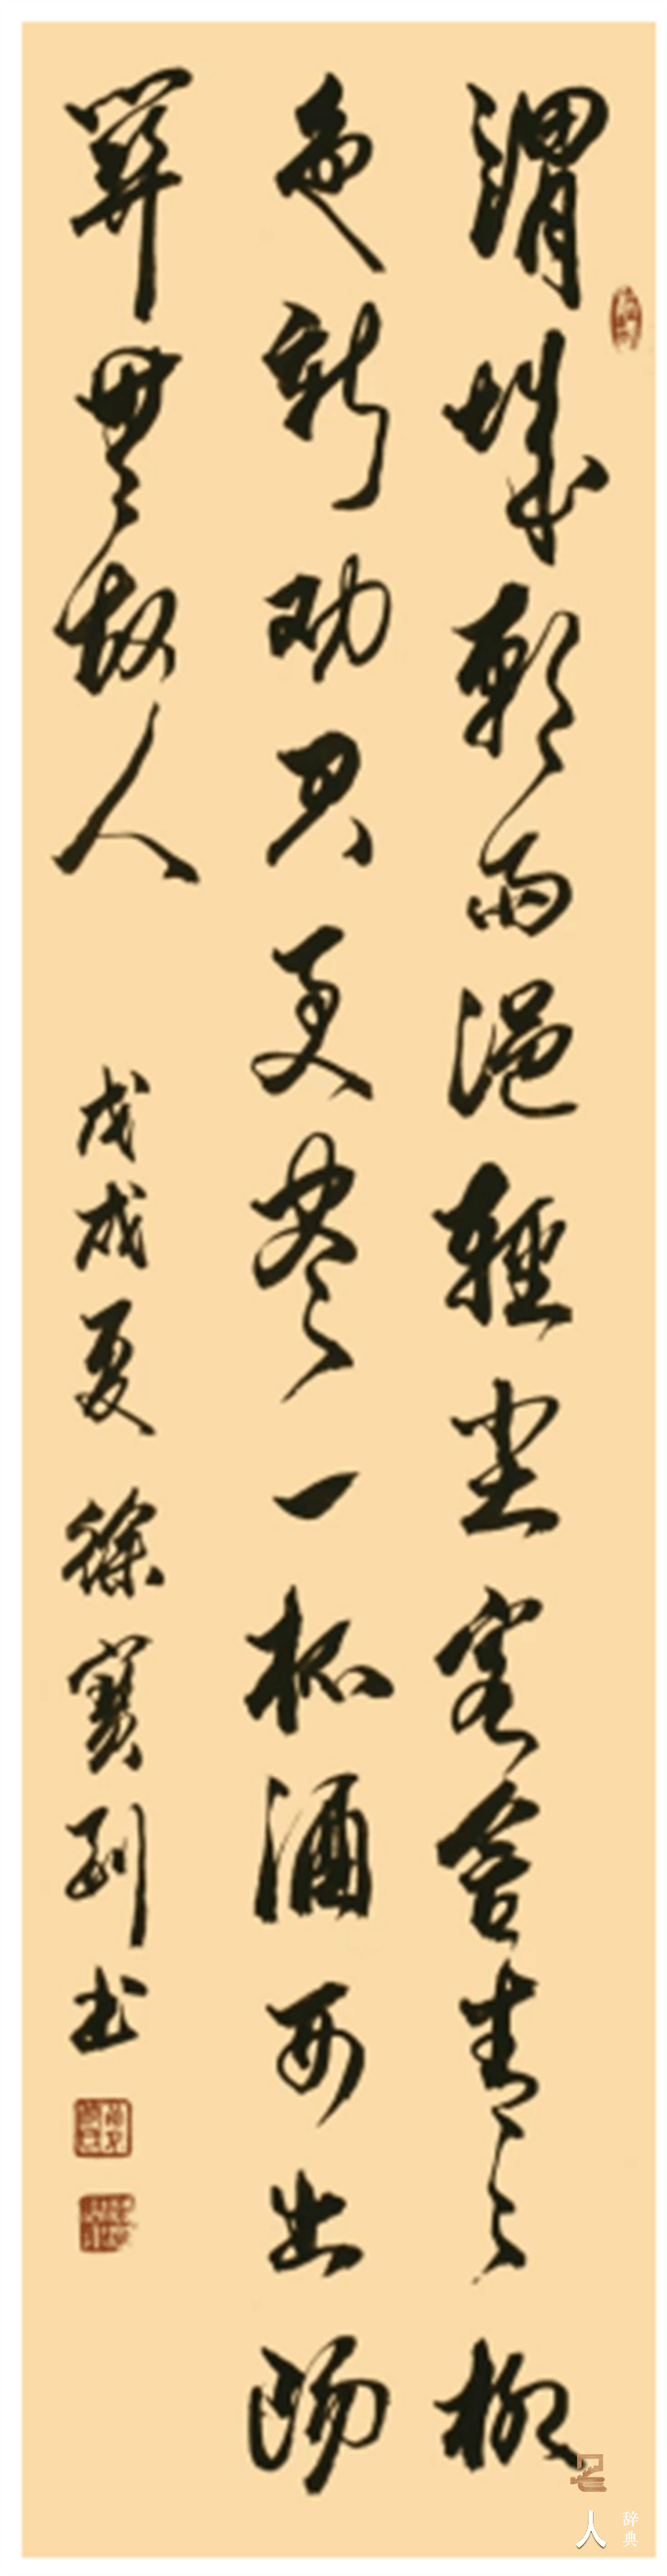 渭城朝雨浥輕尘客舍青々柳
色新劝君更尽一杯酒西出陽
關無故人
戊戌夏徐寶列书
人
辞典